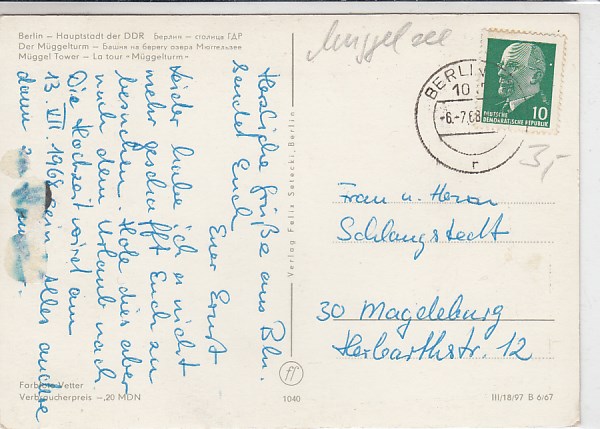 Berlin – Hauptstadt der DDR Берлин – столица ГДР
Der Müggelturm – Башня на берегу озера Мюггельзее
Müggel Tower – La tour »Müggelturm«
Müggelsee
BERLIN
10
-6.-7.68
r
DEUTSCHE
DEMOKRATISCHE REPUBLIK
10
3,-
Herzliche Grüße aus Bln.
sendet Euch
Euer Ernst
Leider habe ich es nicht
mehr geschafft Euch zu
besuchen. Hole dies aber
nach dem Urlaub nach.
Die Hochzeit wird am
13. VII. 1968 sein. Alles andere
dann
Verlag Felix Setecki, Berlin
Frau u. Herrn
Schlangstedt
30 Magdeburg
Herbarthstr. 12
Farbfoto Vetter
Verbraucherpreis –,20 MDN
ff
1040
III/18/97 B 6/67